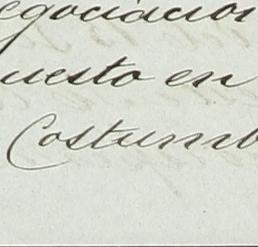 egociacion
uesto en
Costumb